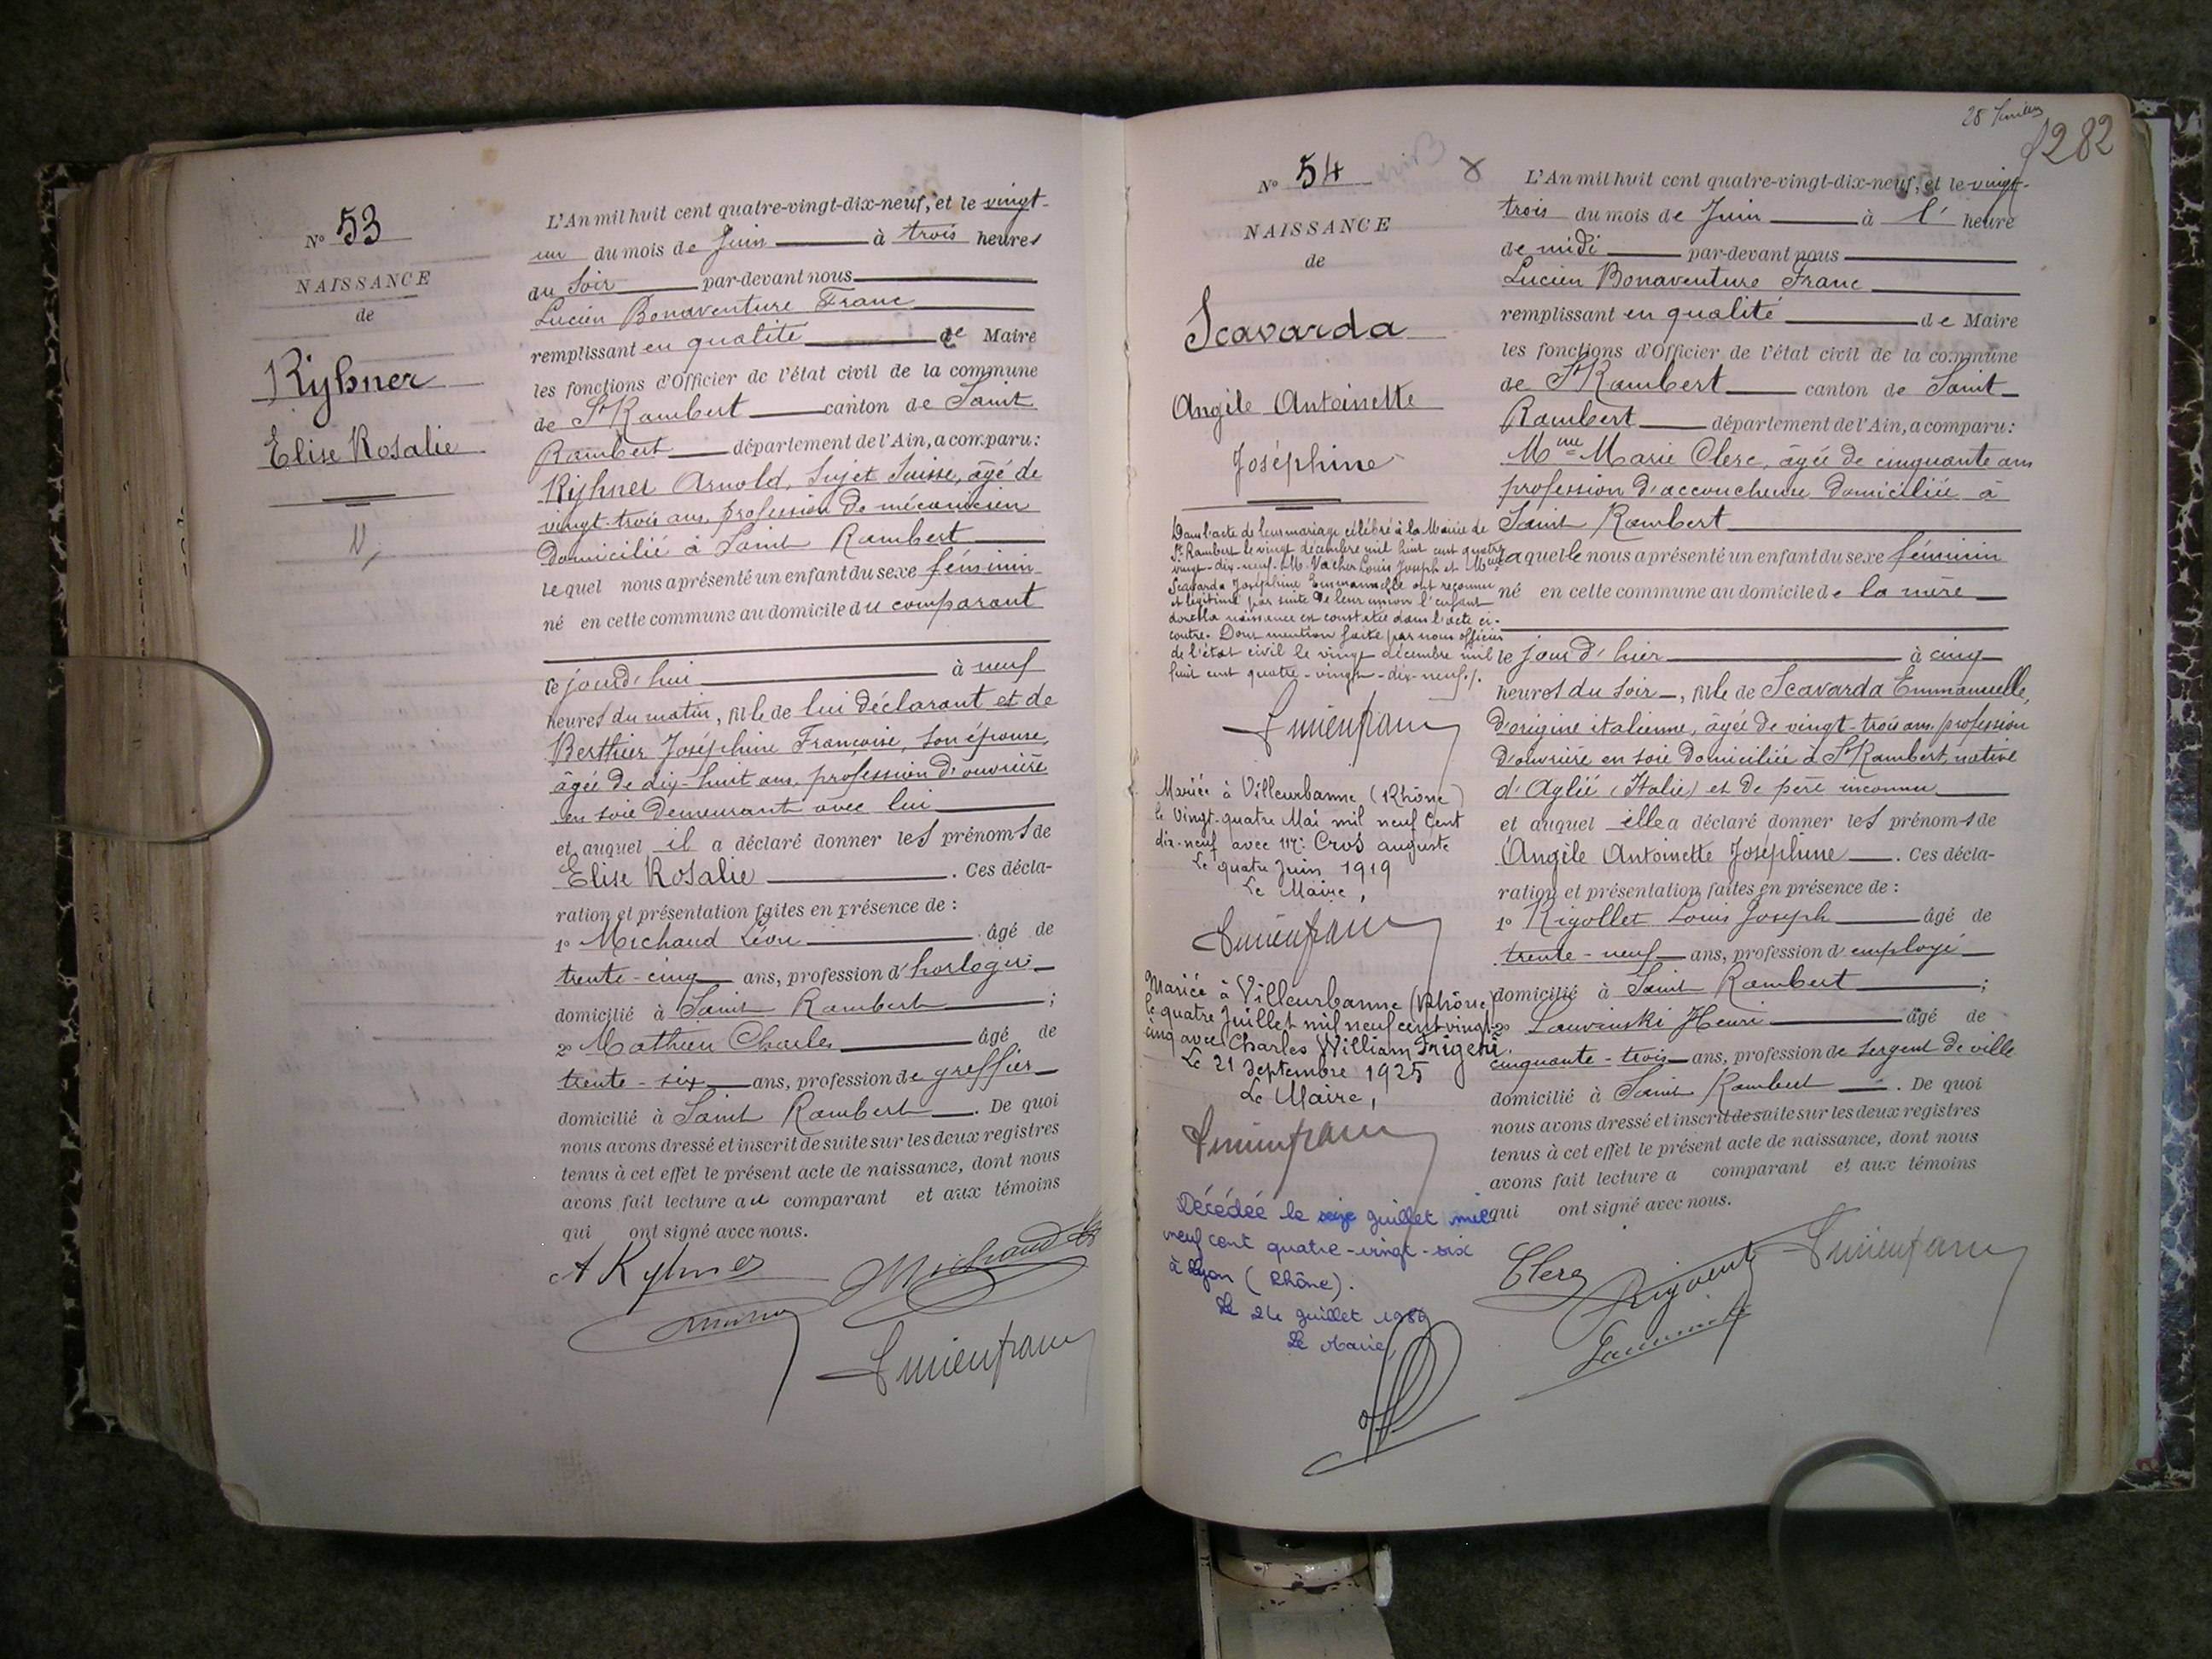 N° 53
NAISSANCE
de
Kyhner
Elise Rosalie
L'An mil huit cent quatre-vingt-dix-neuf, et le vingt-
un du mois de Juin à trois heures
du soir par-devant nous
Lucien Bonaventure Franc
remplissant en qualité de Maire
les fonctions d'Officier de l'état civil de la commune
de St Rambert canton de Saint
Rambert département de l'Ain, a comparu:
Kyhner Arnold, sujet Suisse, âgé de
vingt-trois ans, profession de mécanicien
domicilié à Saint Rambert
lequel nous a présenté un enfant du sexe féminin
né en cette commune au domicile du comparant
le jourd'hui à neuf
heures du matin, fille de lui déclarant et de
Berthier Joséphine Françoise, son épouse,
âgée de dix-huit ans, profession d'ouvrière
en soie demeurant avec lui
et auquel il a déclaré donner les prénoms de
Elise Rosalie. Ces décla-
ration et présentation faites en présence de :
1° Michaud Léon âgé de
trente-cinq ans, profession d'horloger
domicilié à Saint Rambert ;
2° Mathieu Charles âgé de
trente-six ans, profession de greffier
domicilié à Saint Rambert. De quoi
nous avons dressé et inscrit de suite sur les deux registres
tenus à cet effet le présent acte de naissance, dont nous
avons fait lecture au comparant et aux témoins
qui ont signé avec nous.
A Kyhner Michaud
Lucienfranc
282
N° 54
NAISSANCE
de
Scavarda
Angèle Antoinette
Joséphine
Dans l'acte de leur mariage célébré à la Mairie de
St Rambert le vingt décembre mil huit cent quatre
vingt-dix-neuf. M. Vacher Louis Joseph et Melle
Scavarda Joséphine Emmanuelle ont reconnu
et légitimé par suite de leur union l'enfant
dont la naissance est constatée dans l'acte ci-
contre. Dont mention faite par nous officier
de l'état civil le vingt décembre mil
huit cent quatre-vingt-dix-neuf./.
Lucienfranc
Mariée à Villeurbanne (Rhône)
le Vingt-quatre Mai mil neuf Cent
dix-neuf avec Mr. Cros auguste
Le quatre Juin 1919
Le Maire,
Lucienfranc
Mariée à Villeurbanne (Rhône)
le quatre Juillet mil neuf cent vingt-
cinq avec Charles William Frigeri.
Le 21 Septembre 1925
Le Maire,
Lucienfranc
Décédée le seize juillet mil
neuf cent quatre-vingt-six
à Lyon (Rhône).
Le 24 juillet 1986
Le Maire,
L'An mil huit cent quatre-vingt-dix-neuf, et le vingt-
trois du mois de Juin à l' heure
de midi par-devant nous
Lucien Bonaventure Franc
remplissant en qualité de Maire
les fonctions d'Officier de l'état civil de la commune
de St Rambert canton de Saint
Rambert département de l'Ain, a comparu:
Mme Marie Clerc, âgée de cinquante ans
profession d'accoucheuse domiciliée à
Saint Rambert
laquelle nous a présenté un enfant du sexe féminin
né en cette commune au domicile de la mère
le jour d'hier à cinq
heures du soir, fille de Scavarda Emmanuelle,
d'origine italienne, âgée de vingt-trois ans, profession
d'ouvrière en soie domiciliée à St Rambert, native
d'Aglié (Italie) et de père inconnu
et auquel elle a déclaré donner les prénoms de
Angèle Antoinette Joséphine. Ces décla-
ration et présentation faites en présence de :
1° Rigollet Louis Joseph âgé de
trente-neuf ans, profession d'employé
domicilié à Saint Rambert ;
2° Lauvinski Henri âgé de
cinquante-trois ans, profession de sergent de ville
domicilié à Saint Rambert. De quoi
nous avons dressé et inscrit de suite sur les deux registres
tenus à cet effet le présent acte de naissance, dont nous
avons fait lecture a comparant et aux témoins
qui ont signé avec nous.
Clerc Lucienfranc